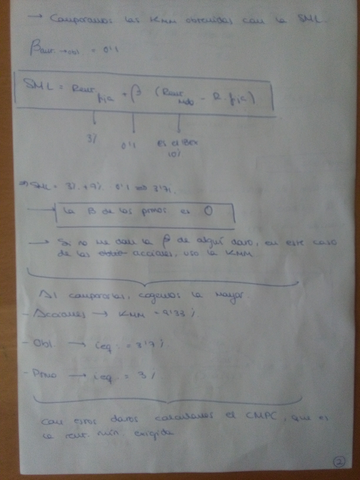 → Comparamos las Kmm obtenidas con la SML.
β = 0'1
SML = Rent fija + β (Rent mdo - R. fija)
3%
0'1
es el Ibex
10%
→ la B de los pmos es 0
→ Si no me dan la β de algún dato, en este caso
de las acciones, uso la Kmm.
Al compararlas, cogemos la mayor
- Acciones → Kmm =
- Obl → ieq. = 3'7%
- Pmo → ieq. = 3%
Con estos datos calculamos el CMPC, que es
la rent. mín. exigida
2